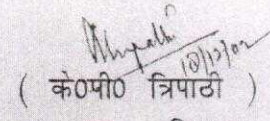 18/12/02
( के०पी० त्रिपाठी )